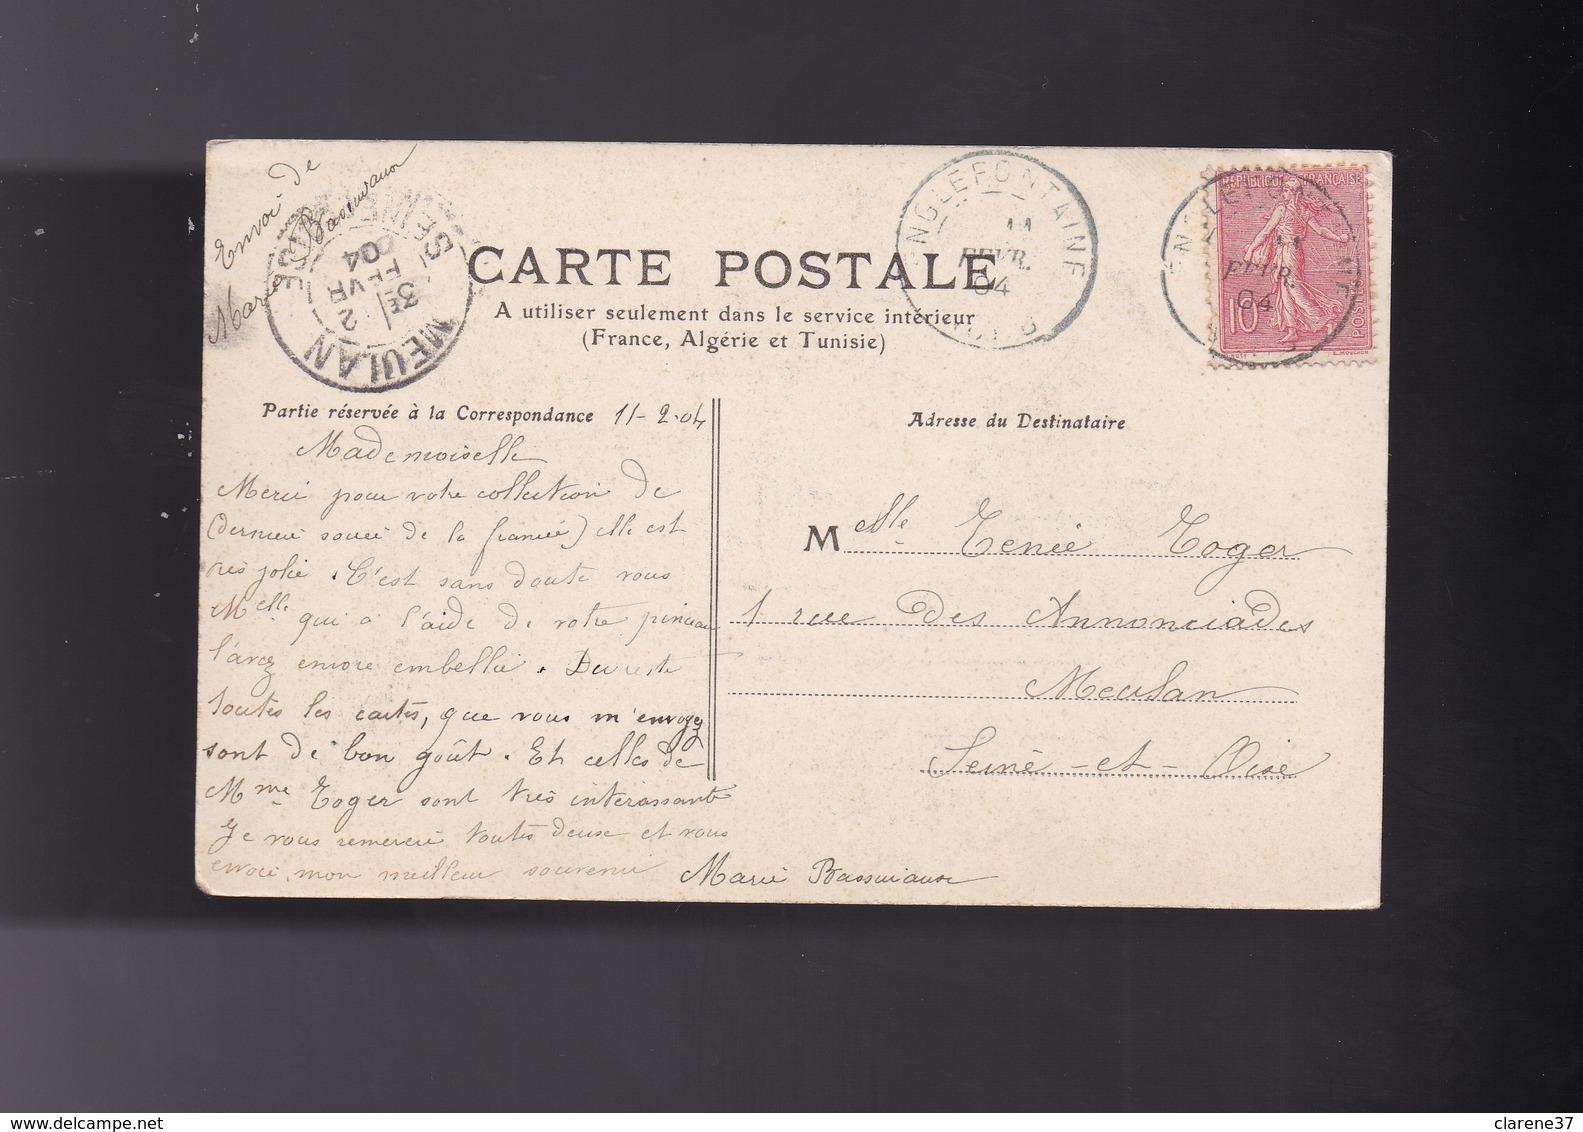 Envoi de
Marie
ENGLEFONTAINE
11
FEVR.
04
ENGLEFONTAINE
11
FEVR.
04
REPUBLIQUE FRANÇAISE
10
POSTES
E. MOUCHON
MEULAN
SEINE ET OISE
3E
2
FEVR
04
CARTE POSTALE
A utiliser seulement dans le service intérieur
(France, Algérie et Tunisie)
Partie réservée à la Correspondance 11-2-04
Adresse du Destinataire
Mademoiselle
Merci pour votre collection de
(dernier de la fiancée) elle est
très jolie. C'est sans doute vous
Melle qui a l'aide de votre pinceau
l'avez encore embellie. Du reste
toutes les cartes, que vous m'envoyez
sont de bon goût. Et celles de
Mme Toger sont très intéressante
Je vous remercie toutes deux et vous
envoie mon meilleur souvenir Marie
Melle Toger
1 rue des Annonciades
Meulan
Seine-et-Oise
delcampe.net
clarene37